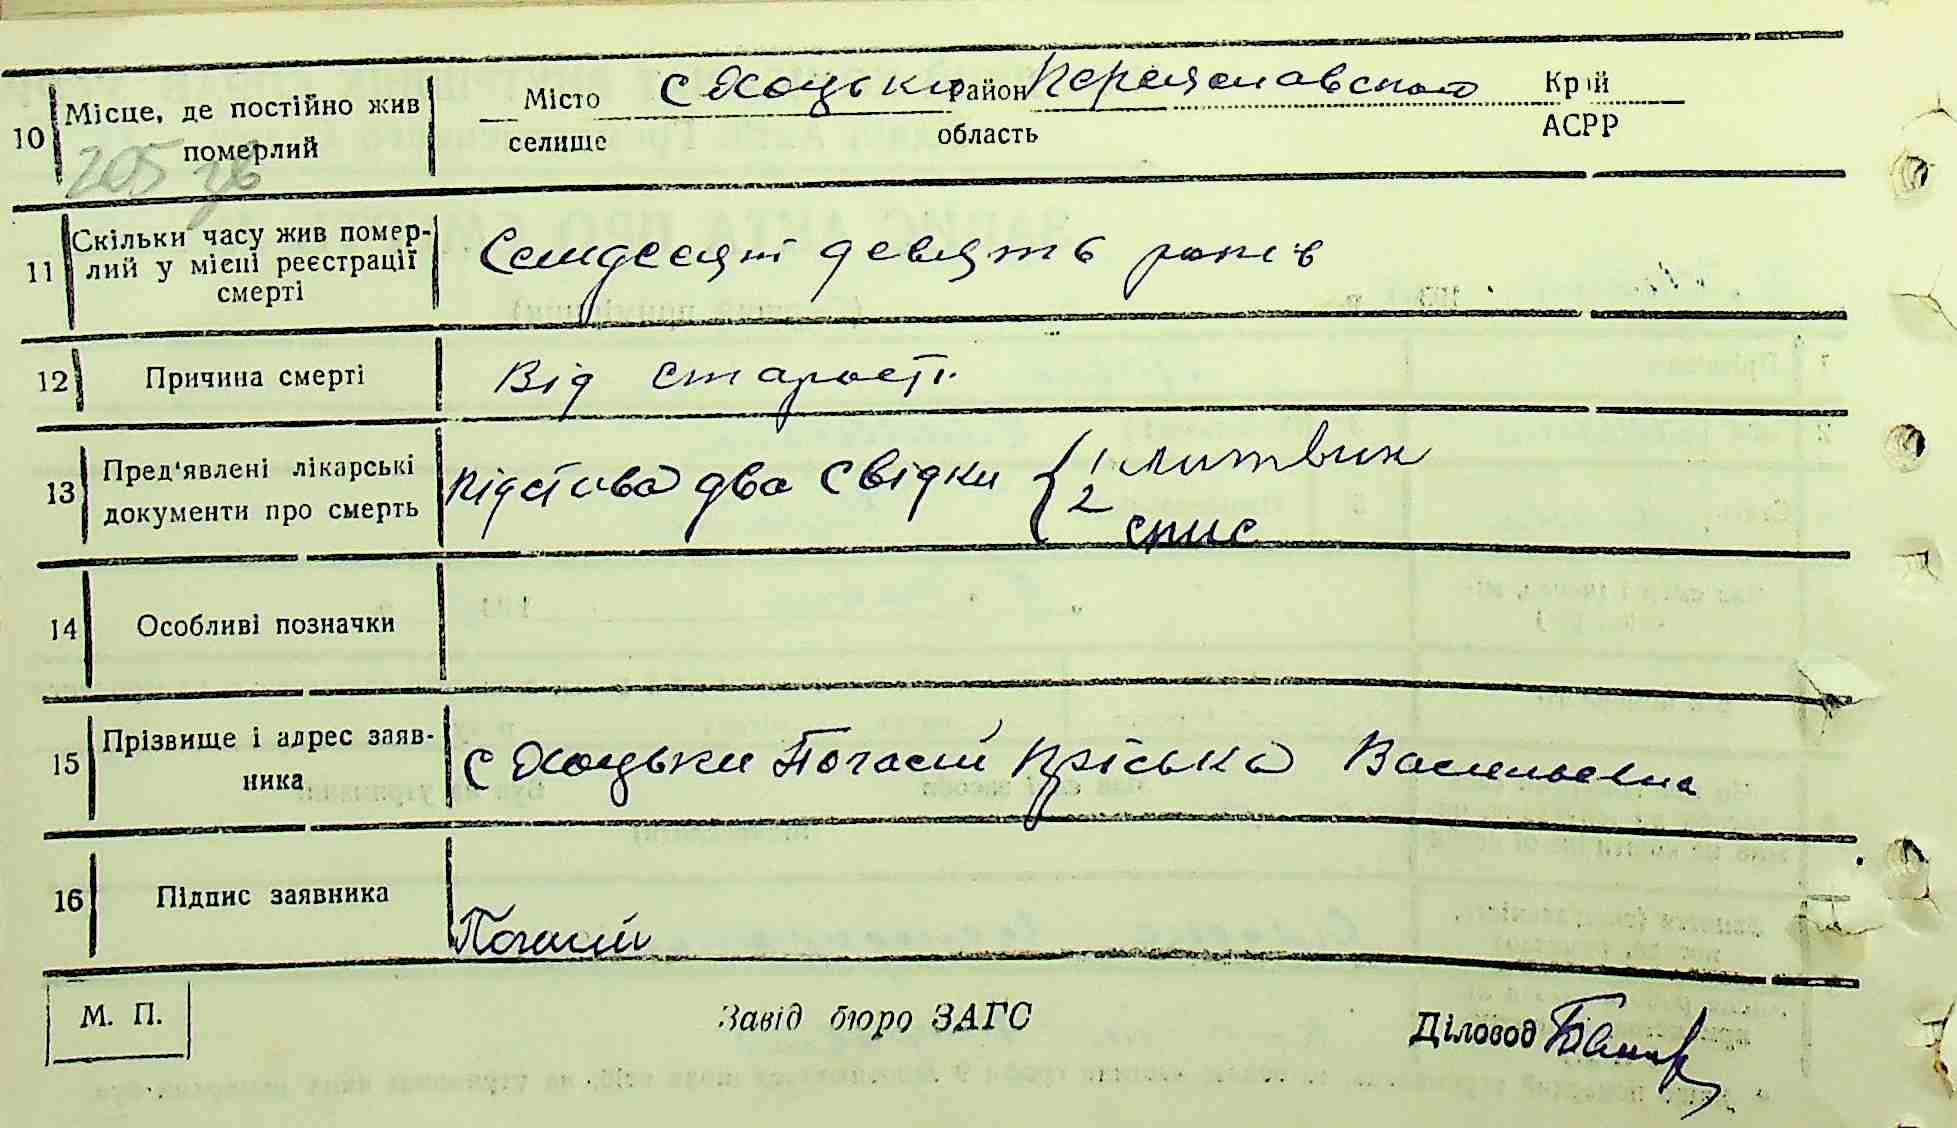 10 Місце, де постійно жив померлий
Місто селище с Хоцьки Район область Переяславского Край АСРР
205 зв
11 Скільки часу жив померлий у місці реєстрації смерті
Семдесят девять років
12 Причина смерті
Від старости.
13 Пред'явлені лікарські документи про смерть
підстава два свідки { 1 литвин
2 спис
14 Особливі позначки
15 Прізвище і адрес заявника
с Хоцьки Погасій Пріська Васильевна
16 Підпис заявника
Погасій
М. П. Завід бюро ЗАГС Діловод